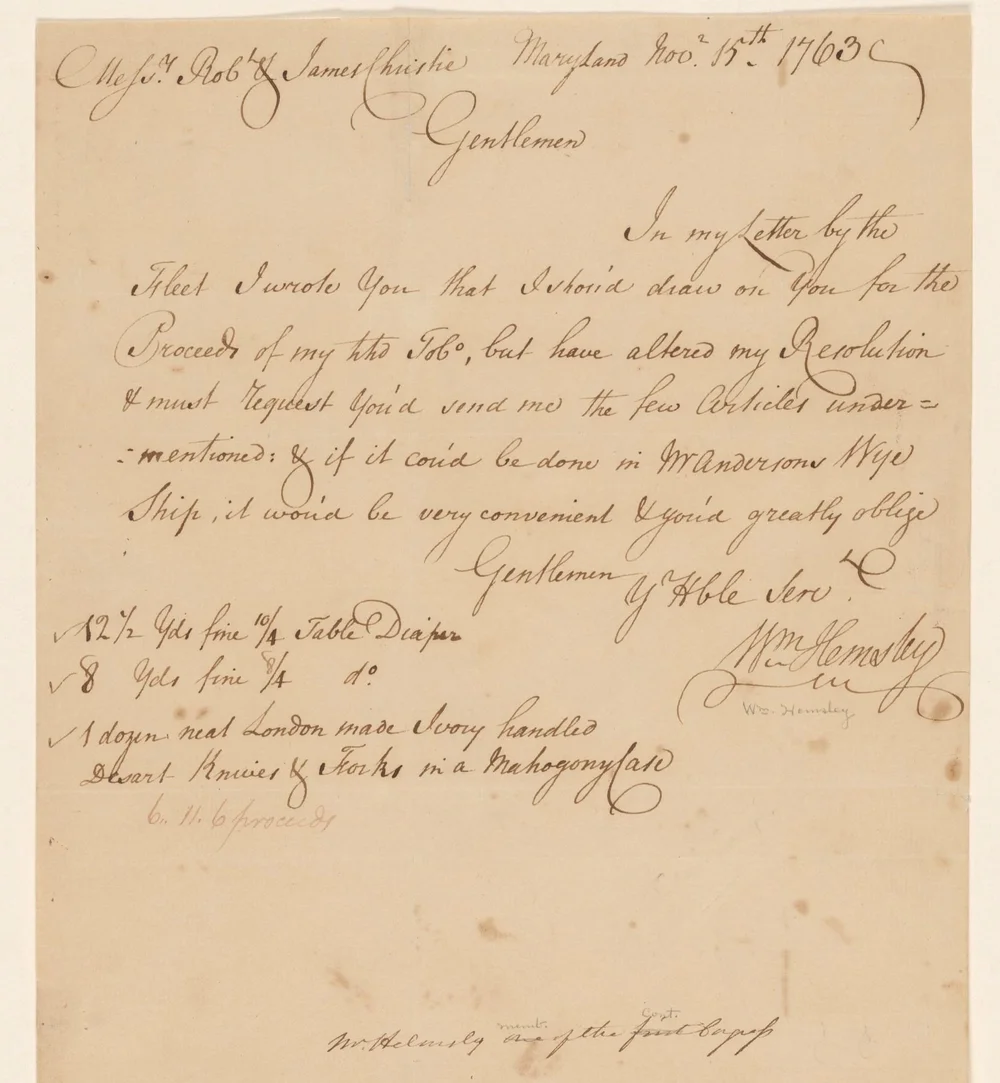 Messrs. Robt. & James Christie Maryland Novr. 15th. 1763
Gentlemen
In my Letter by the
Fleet I wrote You that I shou'd draw on You for the
Proceeds of my hhd Tobo, but have altered my Resolution
& must request You'd send me the few Articles under=
:mentioned: & if it cou'd be done in Mr Andersons Wye
Ship, it wou'd be very convenient & you'd greatly oblige
Gentlemen
Yr Hble Servt.
Wm Hemsley
Wm. Hemsley
12 1/2 Yds fine 10/4 Table Diaper
8 Yds fine 8/4 do.
1 dozen neat London made Ivory handled
Desart Knives & Forks in a Mahogony Case
6. 11. 6 proceeds
memb. Cont.
Mr. Helmsly one of the first Congress